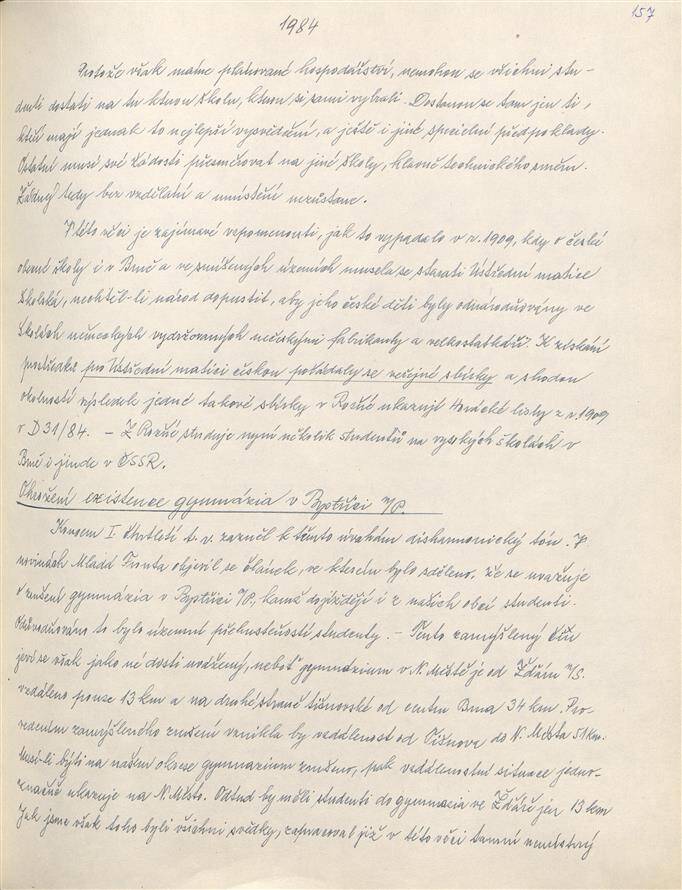 157
1984
Protože však máme plánované hospodářství, nemohou se všichni stu-
denti dostati na tu kterou školu, kterou si sami vybrali. Dostanou se tam jen ti,
kteří mají jednak to nejlepší vysvědčení, a ještě i jiné, speciální předpoklady.
Ostatní musí své žádosti přesměrovat na jiné školy, hlavně technického směru.
Žádný tedy bez vzdělání a umístění nezůstane.
V této věci je zajímavé vzpomenouti, jak to vypadalo v r. 1909, kdy o české
obecné školy i v Brně a ve smíšených územích musela se starati Ústřední matice
školská, nechtěl-li národ dopustit, aby jeho české děti byly odnárodňovány ve
školách německých vydržovaných německými fabrikanty a velkostatkáři. K získání
prostředků pro Ústřední matici českou pořádaly se veřejné sbírky a shodou
okolností výsledek jedné takové sbírky v Rožné ukazují Horácké listy z r. 1909
v D31/84. – Z Rožné studuje nyní několik studentů na vysokých školách v
Brně i jinde v ČSSR.
Ohrožení existence gymnázia v Bystřici n/P.
Koncem I. čtvrtletí t. r. zazněl k těmto úvahám disharmonický tón. V
novinách Mladá Fronta objevil se článek, ve kterém bylo sděleno, že se uvažuje
o zrušení gymnázia v Bystřici n/P., kamž dojíždějí i z našich obcí studenti.
Odůvodňováno to bylo územní přehustěností studenty. – Tento zamýšlený čin
jeví se však jako né dosti uvážený, neboť gymnázium v N. Městě je od Žďáru n/S.
vzdáleno pouze 13 km a na druhé straně tišnovské od centra Brna 34 km. Pro-
vedením zamýšleného zrušení vznikla by vzdálenost od Tišnova do N. Města 51 km.
Musí-li býti na našem okrese gymnazium zrušeno, pak vzdálenostní situace jedno-
značně ukazuje na N. Město. Odtud by měli studenti do gymnasia ve Žďáře jen 13 km
Jak jsme však toho byli všichni svědky, zapracoval již v této věci tamní